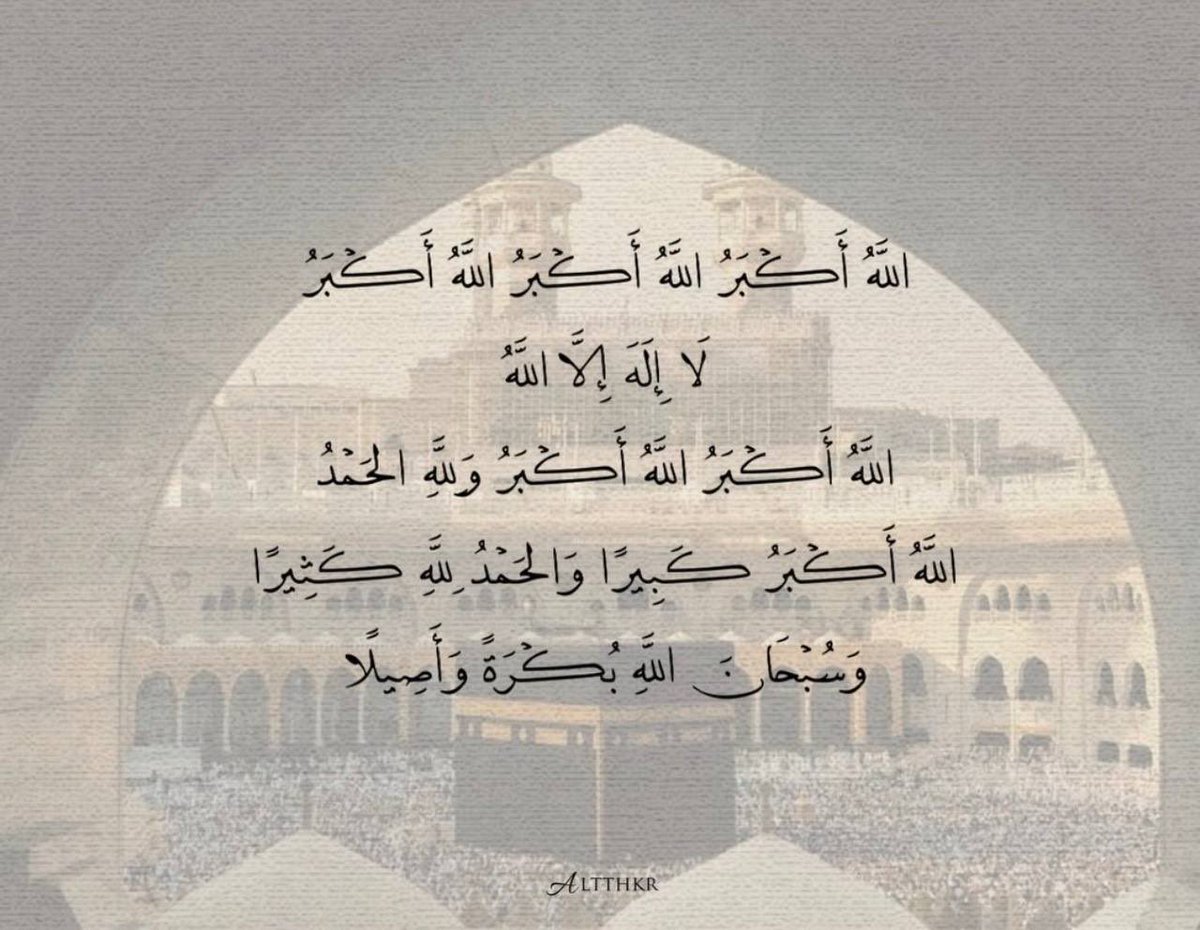 اللَّهُ أَكْبَرُ اللَّهُ أَكْبَرُ اللَّهُ أَكْبَرُ
لَا إِلَهَ إِلَّا اللَّهُ
اللَّهُ أَكْبَرُ اللَّهُ أَكْبَرُ وَلِلَّهِ الحَمْدُ
اللَّهُ أَكْبَرُ كَبِيرًا وَالحَمْدُ لِلَّهِ كَثِيرًا
وَسُبْحَانَ اللَّهِ بُكْرَةً وَأَصِيلًا
ALTTHKR